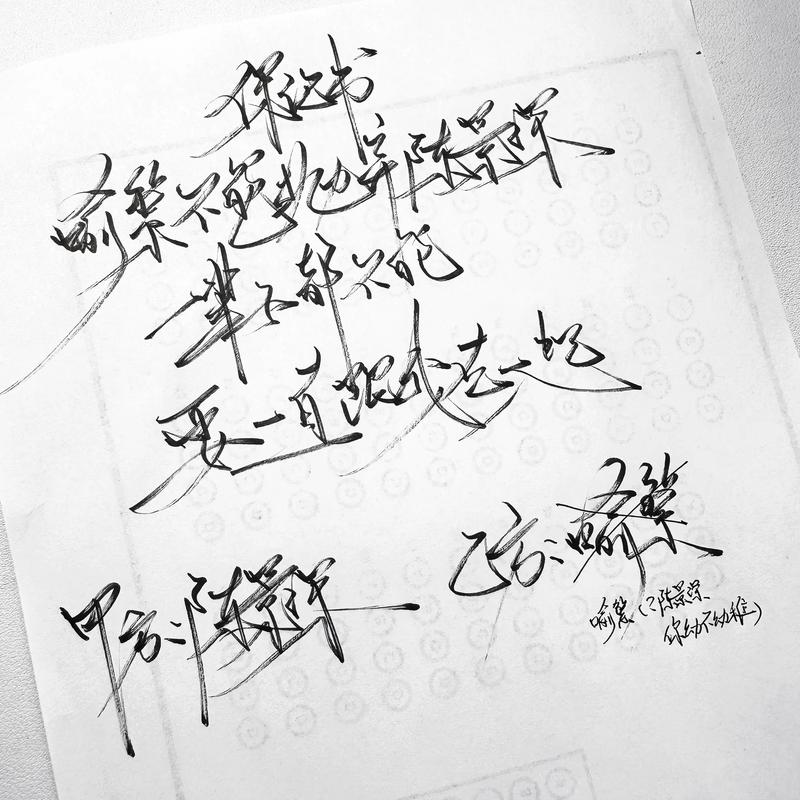 保证书
喻繁不能抛弃陈景深
一辈子都不能
要一直跟我在一起
甲方：陈景深
乙方：喻繁
喻繁（？陈景深
你幼不幼稚）